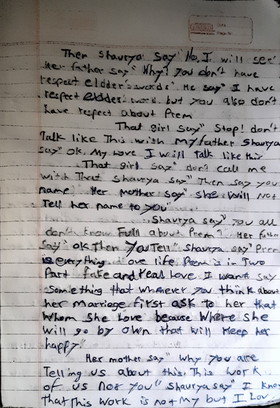 Date
Page No.
Then Shaurya say" No, I will see"
Her father say" Why? You don't have
respect elder's words" He say" I have
respect elder's work but you also don't
have respect about Prem
That girl say" Stop! don't
Talk like This with my father Shaurya
say" Ok. My Love I will Talk like this
That girl say" don't call me
with That Shaurya say" Then Say you
name" Her Mother say" She will Not
Tell her name to you"
Shaurya say" You all
don't know Full about Prem". Her Fathe
say" ok Then You Tell" Shaurya say" Prem
is everything Love life. Prem is in Two
Part fake and Real Love I want say
Something that Whenever you think about
her marriage first ask to her that
whom She Love because Where She
will go by own that will Keep her
happy"
Her mother say" Why you are
Telling us about this This work
of us not you" Shaurya say" I know
that This work is not My but I Love